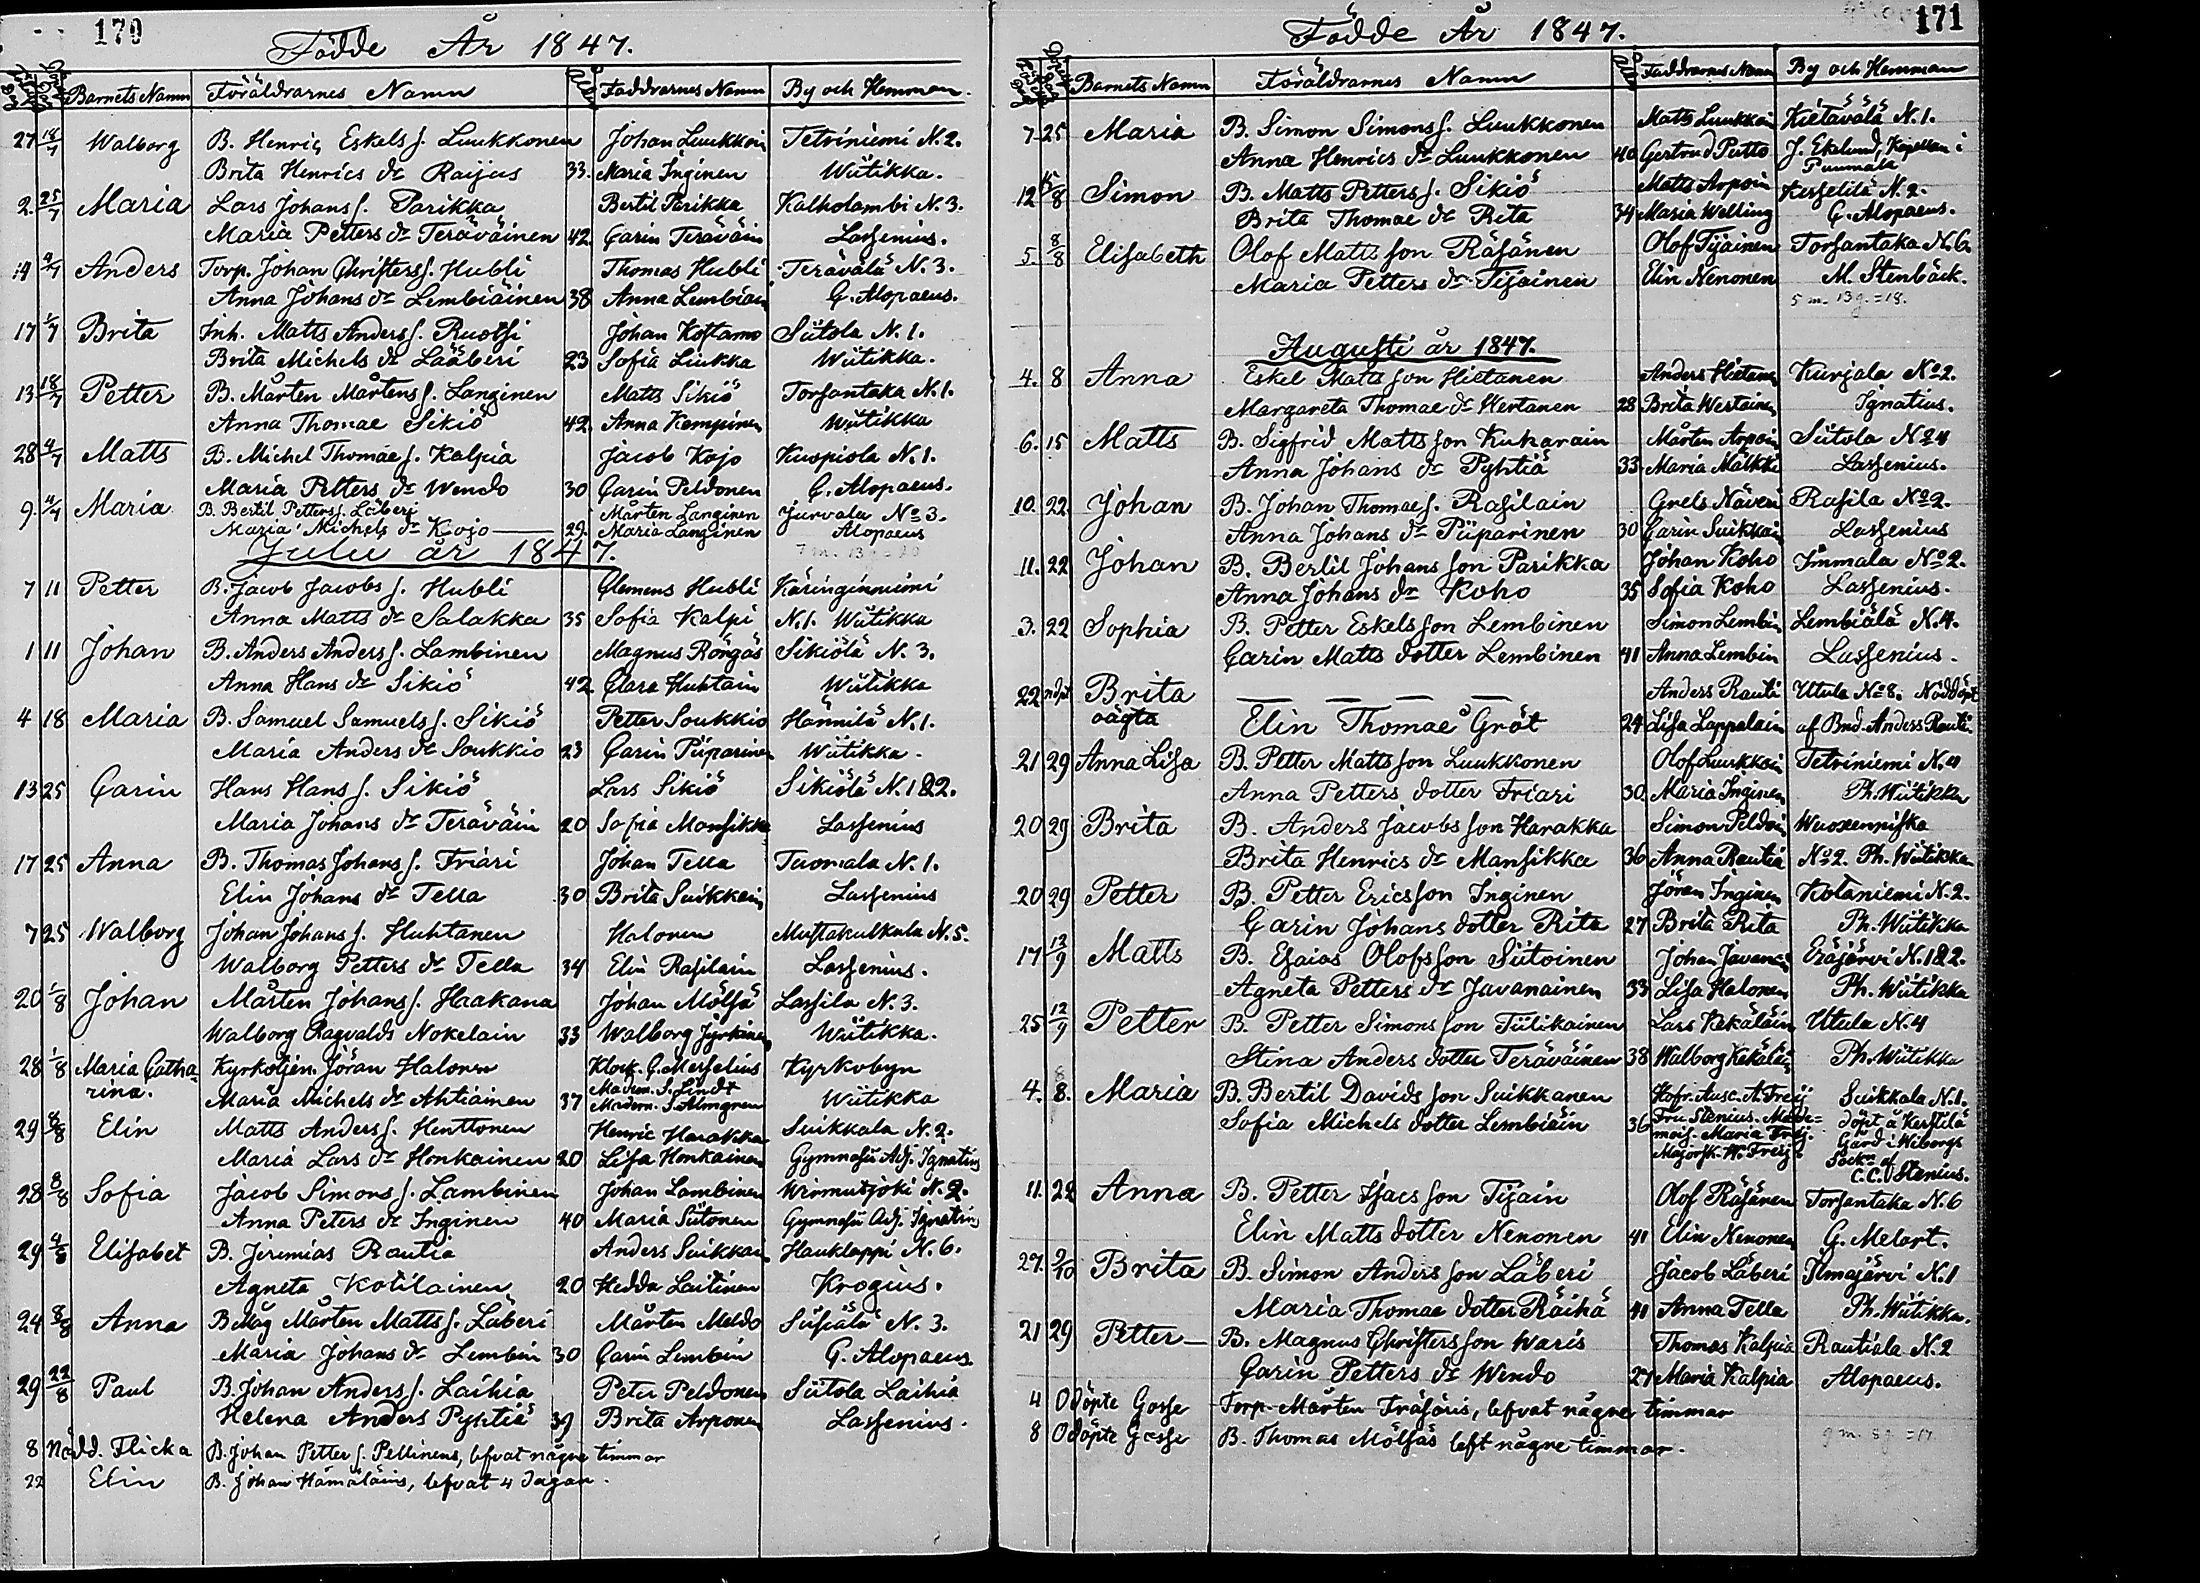 170
Födde År 1847.
Barnets Namn Föräldrarnes Namn Faddrarnes Namn By och Hemman.
27 18/7 Walborg B. Henric Eskels s. Luukkonen Johan Luukkoin Tetriniemi N. 2.
Brita Henrics dr Raijus 33. Maria Inginen Wiitikka.
2. 25/7 Maria Lars Johans s. Parikka Bertil Parikka Kalholambi N. 3.
Maria Petters dr Teräväinen 42. Carin Teräväin Lassenius.
14 4/7 Anders Torp. Johan Christers s. Hubli Thomas Hubli Terävälä N. 3.
Anna Johans dr Lembiäinen 38 Anna Lembiäin G. Alopaeus.
17 1/7 Brita Inh. Matts Anders s. Ruotsi Johan Kostamo Siitola N. 1.
Brita Michels dr Lääberi 23 Sofia Liukka Wiitikka.
13 18/7 Petter B. Mårten Mårtens s. Langinen Matts Sikiö Torsantaka N. 1.
Anna Thomae Sikiö 42. Anna Kempinen Wiitikka
28 4/7 Matts B. Michel Thomae s. Kalpia Jacob Kojo Kuopiola N. 1.
Maria Petters dr Wendo 30 Carin Peldonen G. Alopaeus.
9. 4/7 Maria B. Bertil Petters s. Läberi Mårten Langinen Jurvala No 3.
Maria Michels dr Kojo 29. Maria Langinen Alopaeus
Julii år 1847.
7 11 Petter B. Jacob Jacobs s. Hubli Clemens Hubli Käringinniemi
Anna Matts dr Salakka 35 Sofia Kalpi N. 1. Wiitikka
1 11 Johan B. Anders Anders s. Lambinen Magnus Röngäs Sikiölä N. 3.
Anna Hans dr Sikiö 42 Clara Huhtain Wiitikka
4 18 Maria B. Samuel Samuels s. Sikiö Petter Soukkio Hännilä N. 1.
Maria Anders dr Soukkio 23 Carin Piiparinen Wiitikka.
13 25 Carin Hans Hans s. Sikiö Lars Sikiö Sikiölä N. 1 & 2.
Maria Johans dr Teräväin 20 Sofia Mansikka Lassenius
17 25 Anna B. Thomas Johans s. Friari Johan Tella Tuomala N. 1.
Elin Johans dr Tella 30 Brita Suikkain Lassenius
7 25 Walborg Johan Johans s. Huhtanen Halonen Mustakulkula N. 5.
Walborg Petters dr Tella 34 Elin Rasilain Lassenius.
20 1/8 Johan Mårten Johans s. Haakana Johan Mölsä Lassila N. 3.
Walborg Ragvalds Nokelain 33 Walborg Jyrkinen Wiitikka.
28 1/8 Maria Catha- Kyrkotjen. Jöran Halonen Klock. G. Merselius Kyrkobyn
rina. Maria Michels dr Ahtiainen 37 Madem. S. Lindt
Madem. S. Almgren Wiitikka
29 8/8 Elin Matts Anders s. Henttonen Henric Harakka Suikkala N. 2.
Maria Lars dr Honkainen 20 Lisa Honkainen Gymnasii Adj. Ignatius
28 8/8 Sofia Jacob Simons s. Lambinen Johan Lambinen Wirmutjoki N. 2.
Anna Peters dr Inginen 40 Maria Siitonen Gymnasii Adj. Ignatius
29 4/8 Elisabet B. Jeremias Rautia Anders Suikkain Hauklappi N. 6.
Agneta Kotilainen 20 Hedda Laitinen Krogius.
24 8/8 Anna B. Måg Mårten Matts s. Läberi Mårten Meldo Siisiälä N. 3.
Maria Johans dr Lembin 30 Carin Lembin G. Alopaeus.
29 22/8 Paul B. Johan Anders s. Laihia Peter Peldonen Siitola Laihia
Helena Anders Pyhtiä 39 Brita Arponen Lassenius.
8 Nödd. Flicka B. Johan Petter s. Pellinens, lefvat någre timmar
22 Elin B. Johan Hämäläins, lefvat 4 dagar.
171
Födde År 1847.
Barnets Namn Föräldrarnes Namn Faddrarnes Namn By och Hemman
7 25 Maria B. Simon Simons s. Luukkonen Matts Luukkain Kietävälä N. 1.
Anna Henrics dr Luukkonen 40 Gertrud Putto J. Ekelund, Kapellan i
Puumala
12 15/8 Simon B. Matts Petters s. Sikiö Matts Arpoin Kersselilä N. 2.
Brita Thomae dr Rita 34 Maria Welling G. Alopaeus.
5 8/8 Elisabeth Olof Matts son Räsänen Olof Tijainen Torsantaka N. 6
Maria Petters dr Tijainen Elin Nenonen M. Stenbäck.
5 m. 13 g. = 18.
Augusti år 1847.
4. 8 Anna Eskel Matts son Hietanen Anders Hietanen Kurjala No 2.
Margareta Thomae dr Hertanen 28 Brita Wertainen Ignatius.
6. 15 Matts B. Sigfrid Matts son Kukarain Mårten Arpoin Siitola N 24
Anna Johans dr Pyhtiä 33 Maria Mälkki Lassenius.
10. 22 Johan B. Johan Thomae s. Rasilain Grels Näveri Rasila No 2.
Anna Johans dr Piiparinen 30 Carin Suikkain Lassenius
11. 22 Johan B. Bertil Johans son Parikka Johan Koho Immala No 2.
Anna Johans dr Koho 35 Sofia Koho Lassenius.
3. 22 Sophia B. Petter Eskels son Lembinen Simon Lembin Lembiälä N. 4.
Carin Matts dotter Lembinen 41 Anna Lembin Lassenius.
22 ndpt Brita Anders Rauti Utula No 8. Nöddöpt
oägta Elin Thomae Gröt 24 Lisa Lappalain af Bnd. Anders Rauti.
21 29 Anna Lisa B. Petter Matts son Luukkonen Olof Luukkain Tetriniemi N. 4
Anna Petters dotter Friari 30. Maria Inginen Ph. Wiitikka
20 29 Brita B. Anders Jacobs son Harakka Simon Peldoin Wuoxenniska
Brita Henrics dr Mansikka 36 Anna Rautia No 2. Ph. Wiitikka
20 29 Petter B. Petter Ericsson Inginen Jöran Inginen Kotaniemi N. 2.
Carin Johans dotter Rita 27 Brita Rita Ph. Wiitikka
17 12/9 Matts B. Esaias Olofsson Siitoinen Johan Javanain Eräjärvi N. 1 & 2.
Agneta Petters dr Javanainen 33 Lisa Halonen Ph. Wiitikka
25 12/9 Petter B. Petter Simons son Tiilikainen Lars Kekäläin Utula N. 4
Stina Anders dotter Teräväinen 38 Walborg Kekäläin Ph. Wiitikka
4. 8. Maria B. Bertil Davids son Suikkanen Hofr. Ausc. A. Freij Suikkala N. 1.
Sofia Michels dotter Lembiäin 36 Fru Stenius. Made= döpt å Kerstilä
mois. Maria Freij. Gård i Wiborgs
Majorsk. W. Freij Sockn af
C. C. Stenius.
11. 22 Anna B. Petter Isacs son Tijain Olof Räsänen Torsantaka N. 6
Elin Matts dotter Nenonen 41 Elin Nenonen G. Melart.
27. 9/10 Brita B. Simon Anders son Läberi Jacob Läberi Ilmajärvi N. 1
Maria Thomae dotter Räihä 41 Anna Tella Ph. Wiitikka.
21 29 Petter B. Magnus Christers son Waris Thomas Kalpia Rautiala N. 2
Carin Petters dr Wendo 27 Maria Kalpia Alopaeus.
4 Odöpte Gosse Torp. Mårten Träsäris, lefvat någre timmar
8 Odöpte Gosse B. Thomas Mölsäs left någre timmar. 9 m. 8 g. = 17